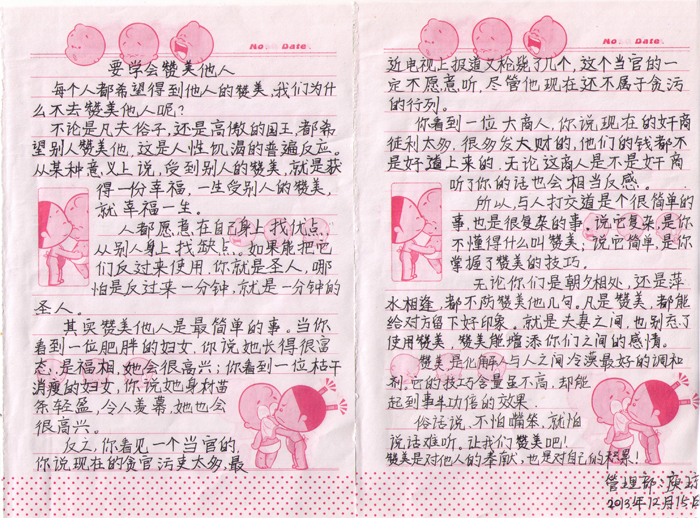 No.   Date.
要学会赞美他人
每个人都希望得到他人的赞美,我们为什
么不去赞美他人呢?
不论是凡夫俗子,还是高傲的国王,都希
望别人赞美他,这是人性饥渴的普遍反应。
从某种意义上说,受到别人的赞美,就是获
得一份幸福,一生受别人的赞美,
就幸福一生。
人都愿意在自己身上找优点,
从别人身上找缺点。如果能把它
们反过来使用,你就是圣人,哪
怕是反过来一分钟,就是一分钟的
圣人。
其实赞美他人是最简单的事。当你
看到一位肥胖的妇女,你说她长得很富
态,是福相,她会很高兴;你看到一位枯干
消瘦的妇女,你说她身材苗
条轻盈,令人羡慕,她也会
很高兴。
反之,你看见一个当官的,
你说现在的贪官污吏太多,最
No.   Date.
近电视上报道又枪毙了几个,这个当官的一
定不愿意听,尽管他现在还不属于贪污
的行列。
你看到一位大商人,你说现在的奸商
徒利太多,很多发大财的,他们的钱都不
是好道上来的,无论这商人是不是奸商
听了你的话也会相当反感。
所以,与人打交道是个很简单的
事,也是很复杂的事。说它复杂,是你
不懂得什么叫赞美;说它简单,是你
掌握了赞美的技巧。
无论你们是朝夕相处,还是萍
水相逢,都不妨赞美他几句。凡是赞美,都能
给对方留下好印象。就是夫妻之间,也别忘了
使用赞美,赞美能增添你们之间的感情。
赞美,是化解人与人之间冷漠最好的调和
剂,它的技巧含量虽不高,却能
起到事半功倍的效果.
俗话说,不怕嘴笨,就怕
说话难听,让我们赞美吧!
赞美是对他人的奉献,也是对自己的积累!
管理部:庾
2013年12月15日